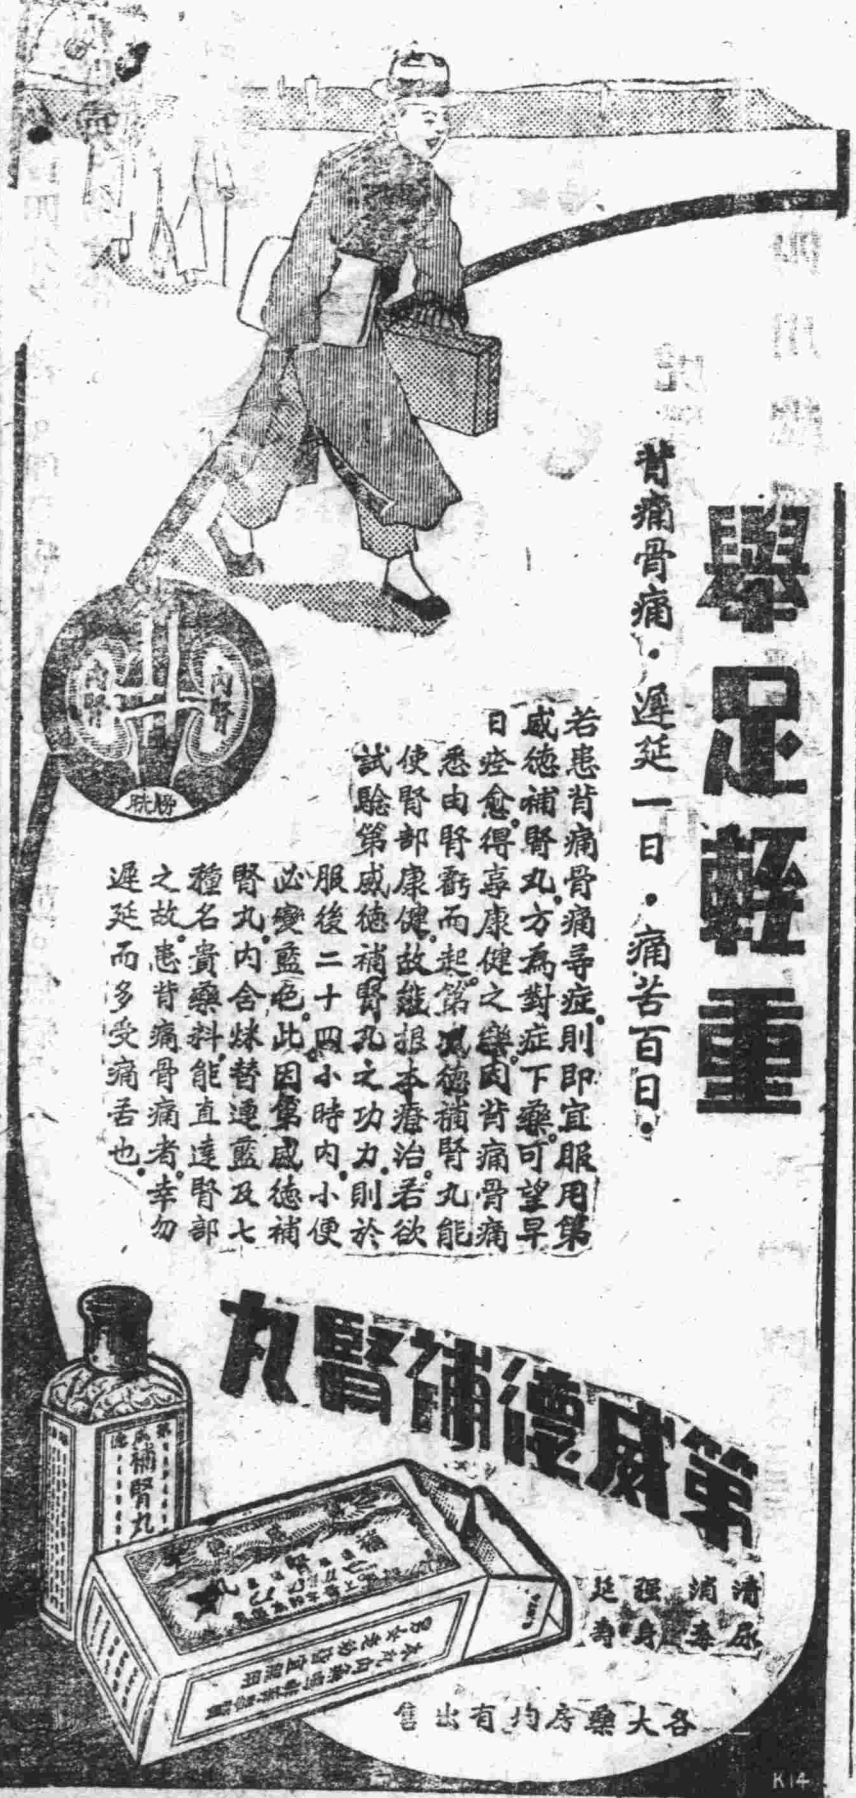 舉足輕重
背痛骨痛・遲延一日・痛苦百日・
若患背痛骨痛等症則即宜服用第
威德補腎丸方為對症下藥可望早
日痊愈得享康健之樂因背痛骨痛
悉由腎虧而起第威德補腎丸能
使腎部康健故能根本療治若欲
試驗第威德補腎丸之功力則於
服後二十四小時內小便
必變藍色此因第威德補
腎丸內含炑替連藍及七
種名貴藥料能直達腎部
之故患背痛骨痛者幸勿
遲延而多受痛苦也
內腎
內腎
膀胱
第威德補腎丸
第威德
補腎丸
清尿
消毒
强身
延壽
各大藥房均有出售
K14